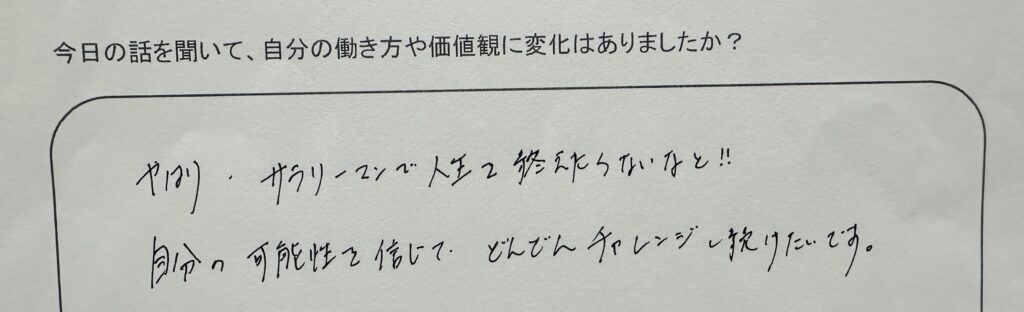 今日の話を聞いて、自分の働き方や価値観に変化はありましたか？
やはり、サラリーマンで人生を終えたらないなと!!
自分の可能性を信じて、どんでんチャレンジし続けたいです。